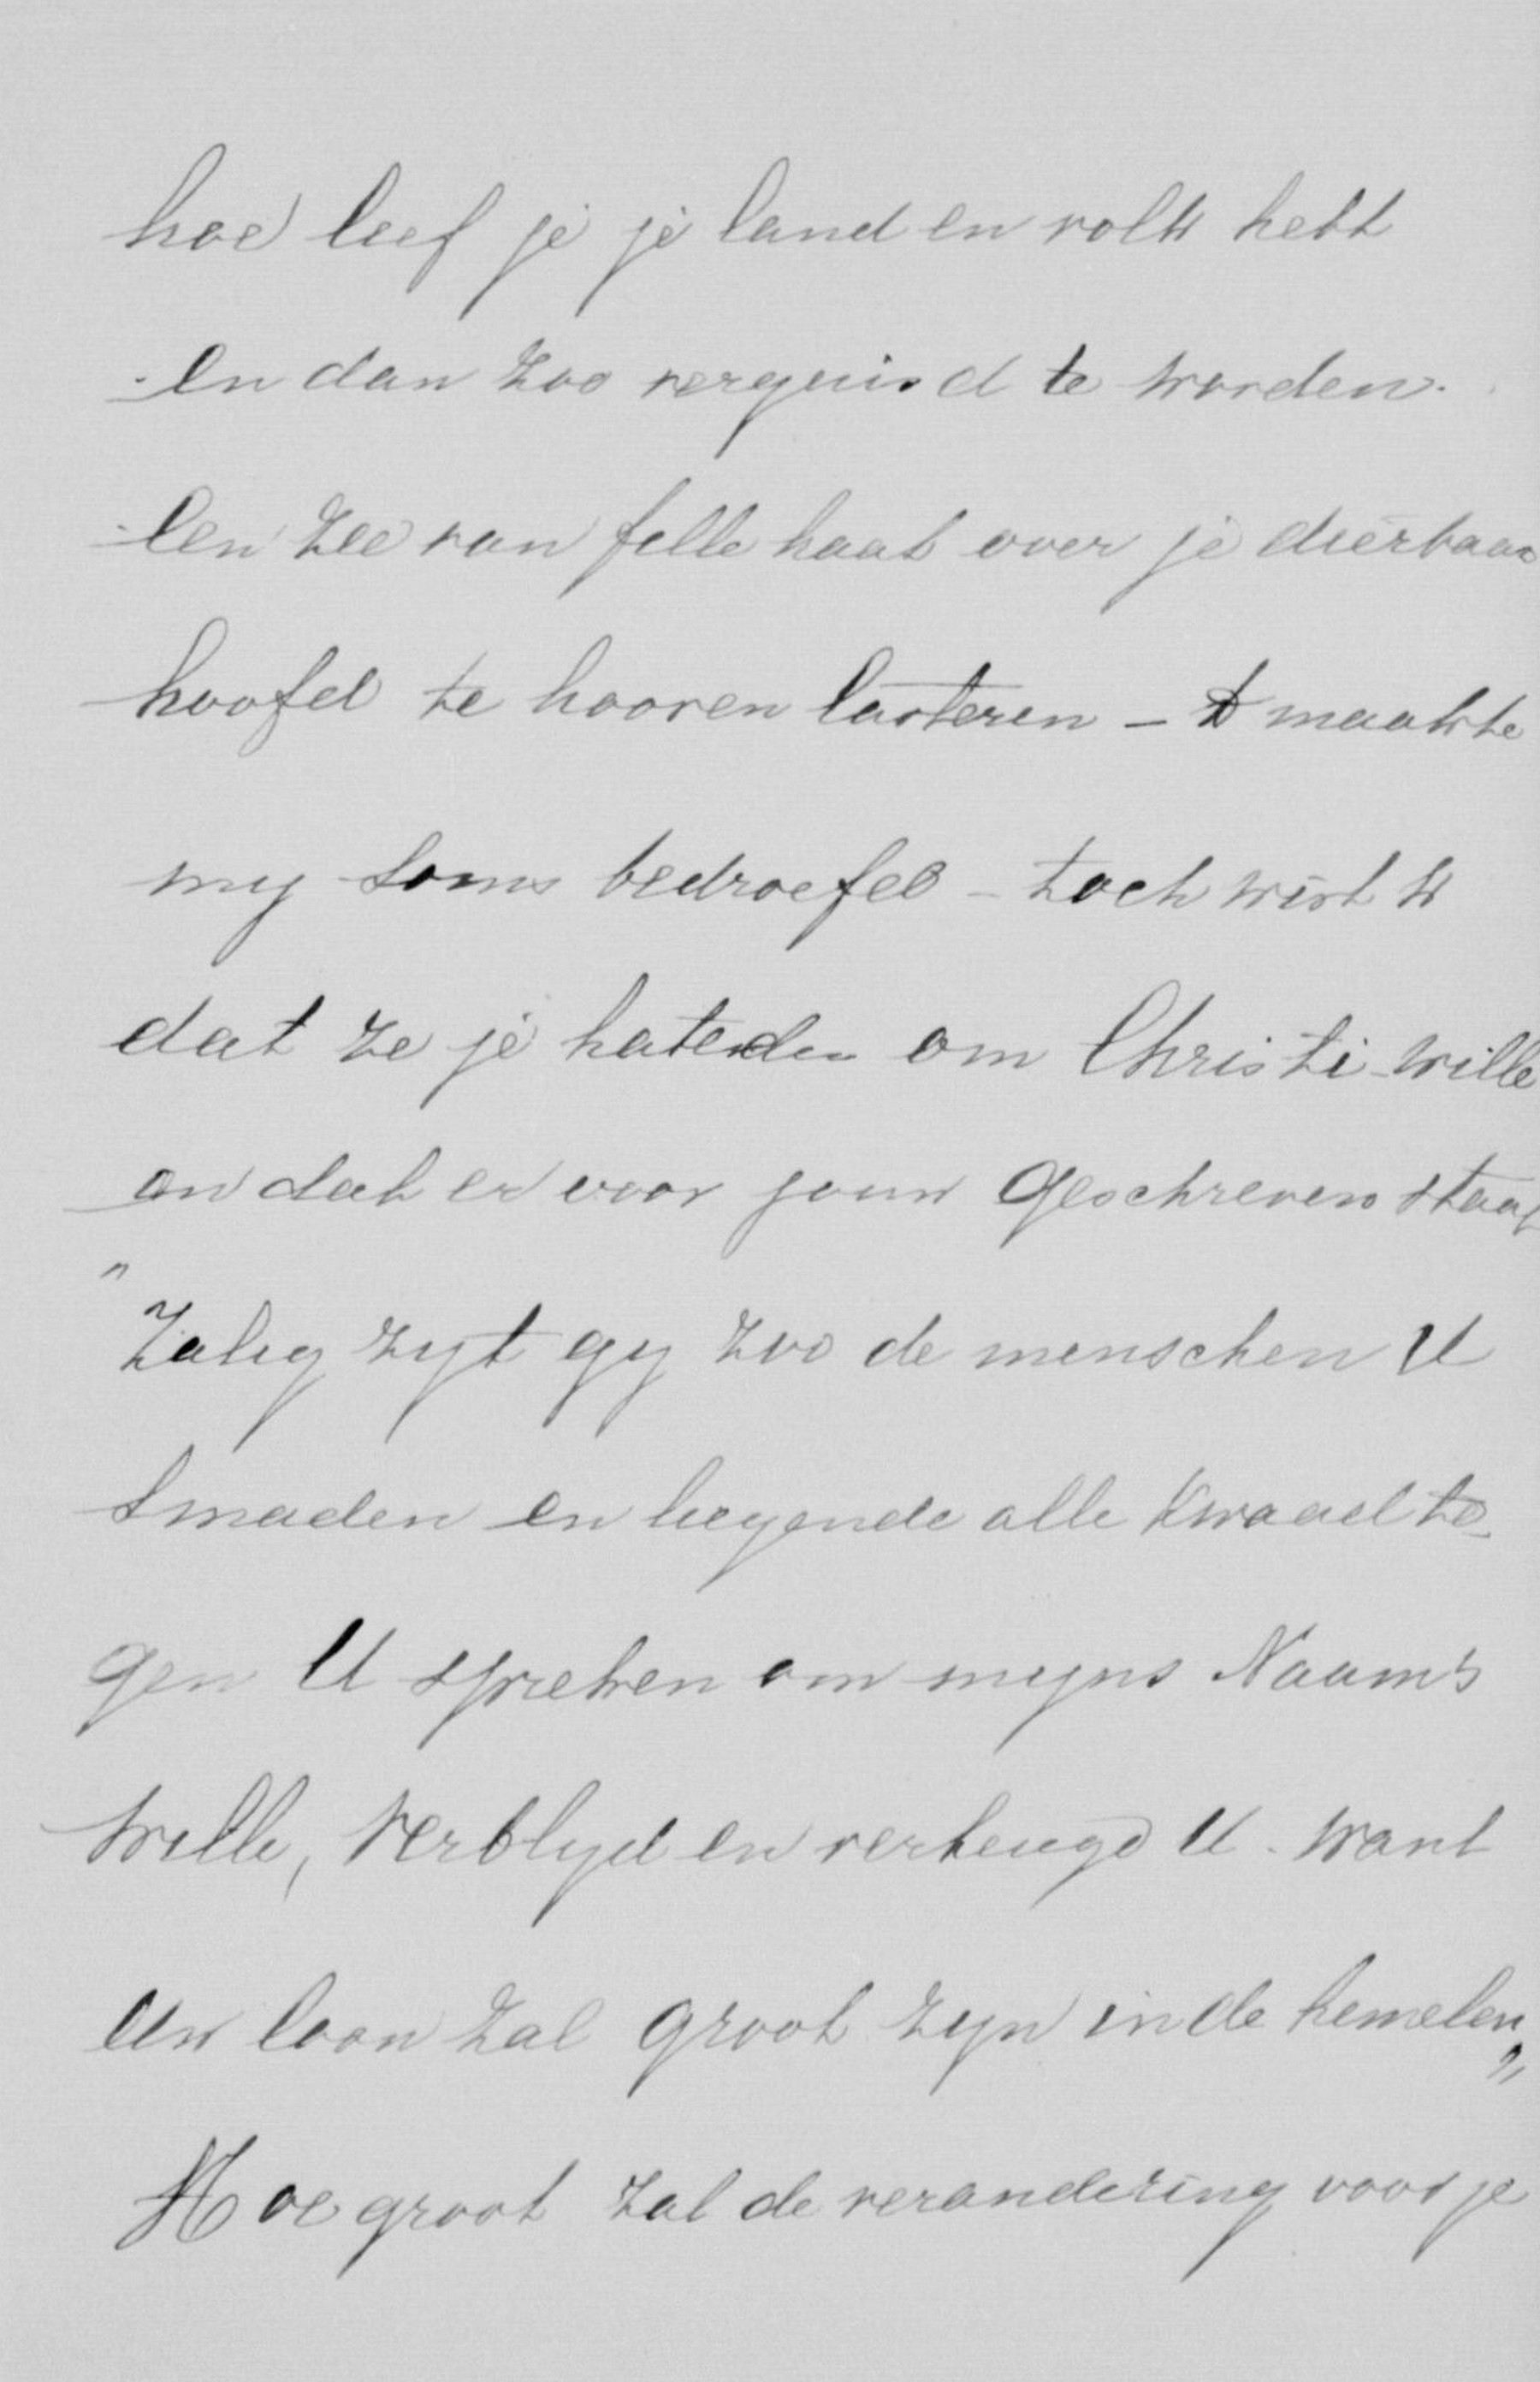 hoe lief je je land en volk hebt
en dan zoo verguisd te worden.
Een zee van felle haat over je dierbaar
hoofd te hooren lasteren – 't maakte
my soms bedroefd – toch wist k
dat ze je hateden om Christi wille
en dat er voor jouw geschreven staat
"Zalig zyt gy zoo de menschen U
smaden en liegende alle kwaad te
gen U spreken om myns Naam's
wille, verblyd en verheugd U. want
Uw loon zal groot zyn in de hemelen"
Hoe groot zal de verandering voor je